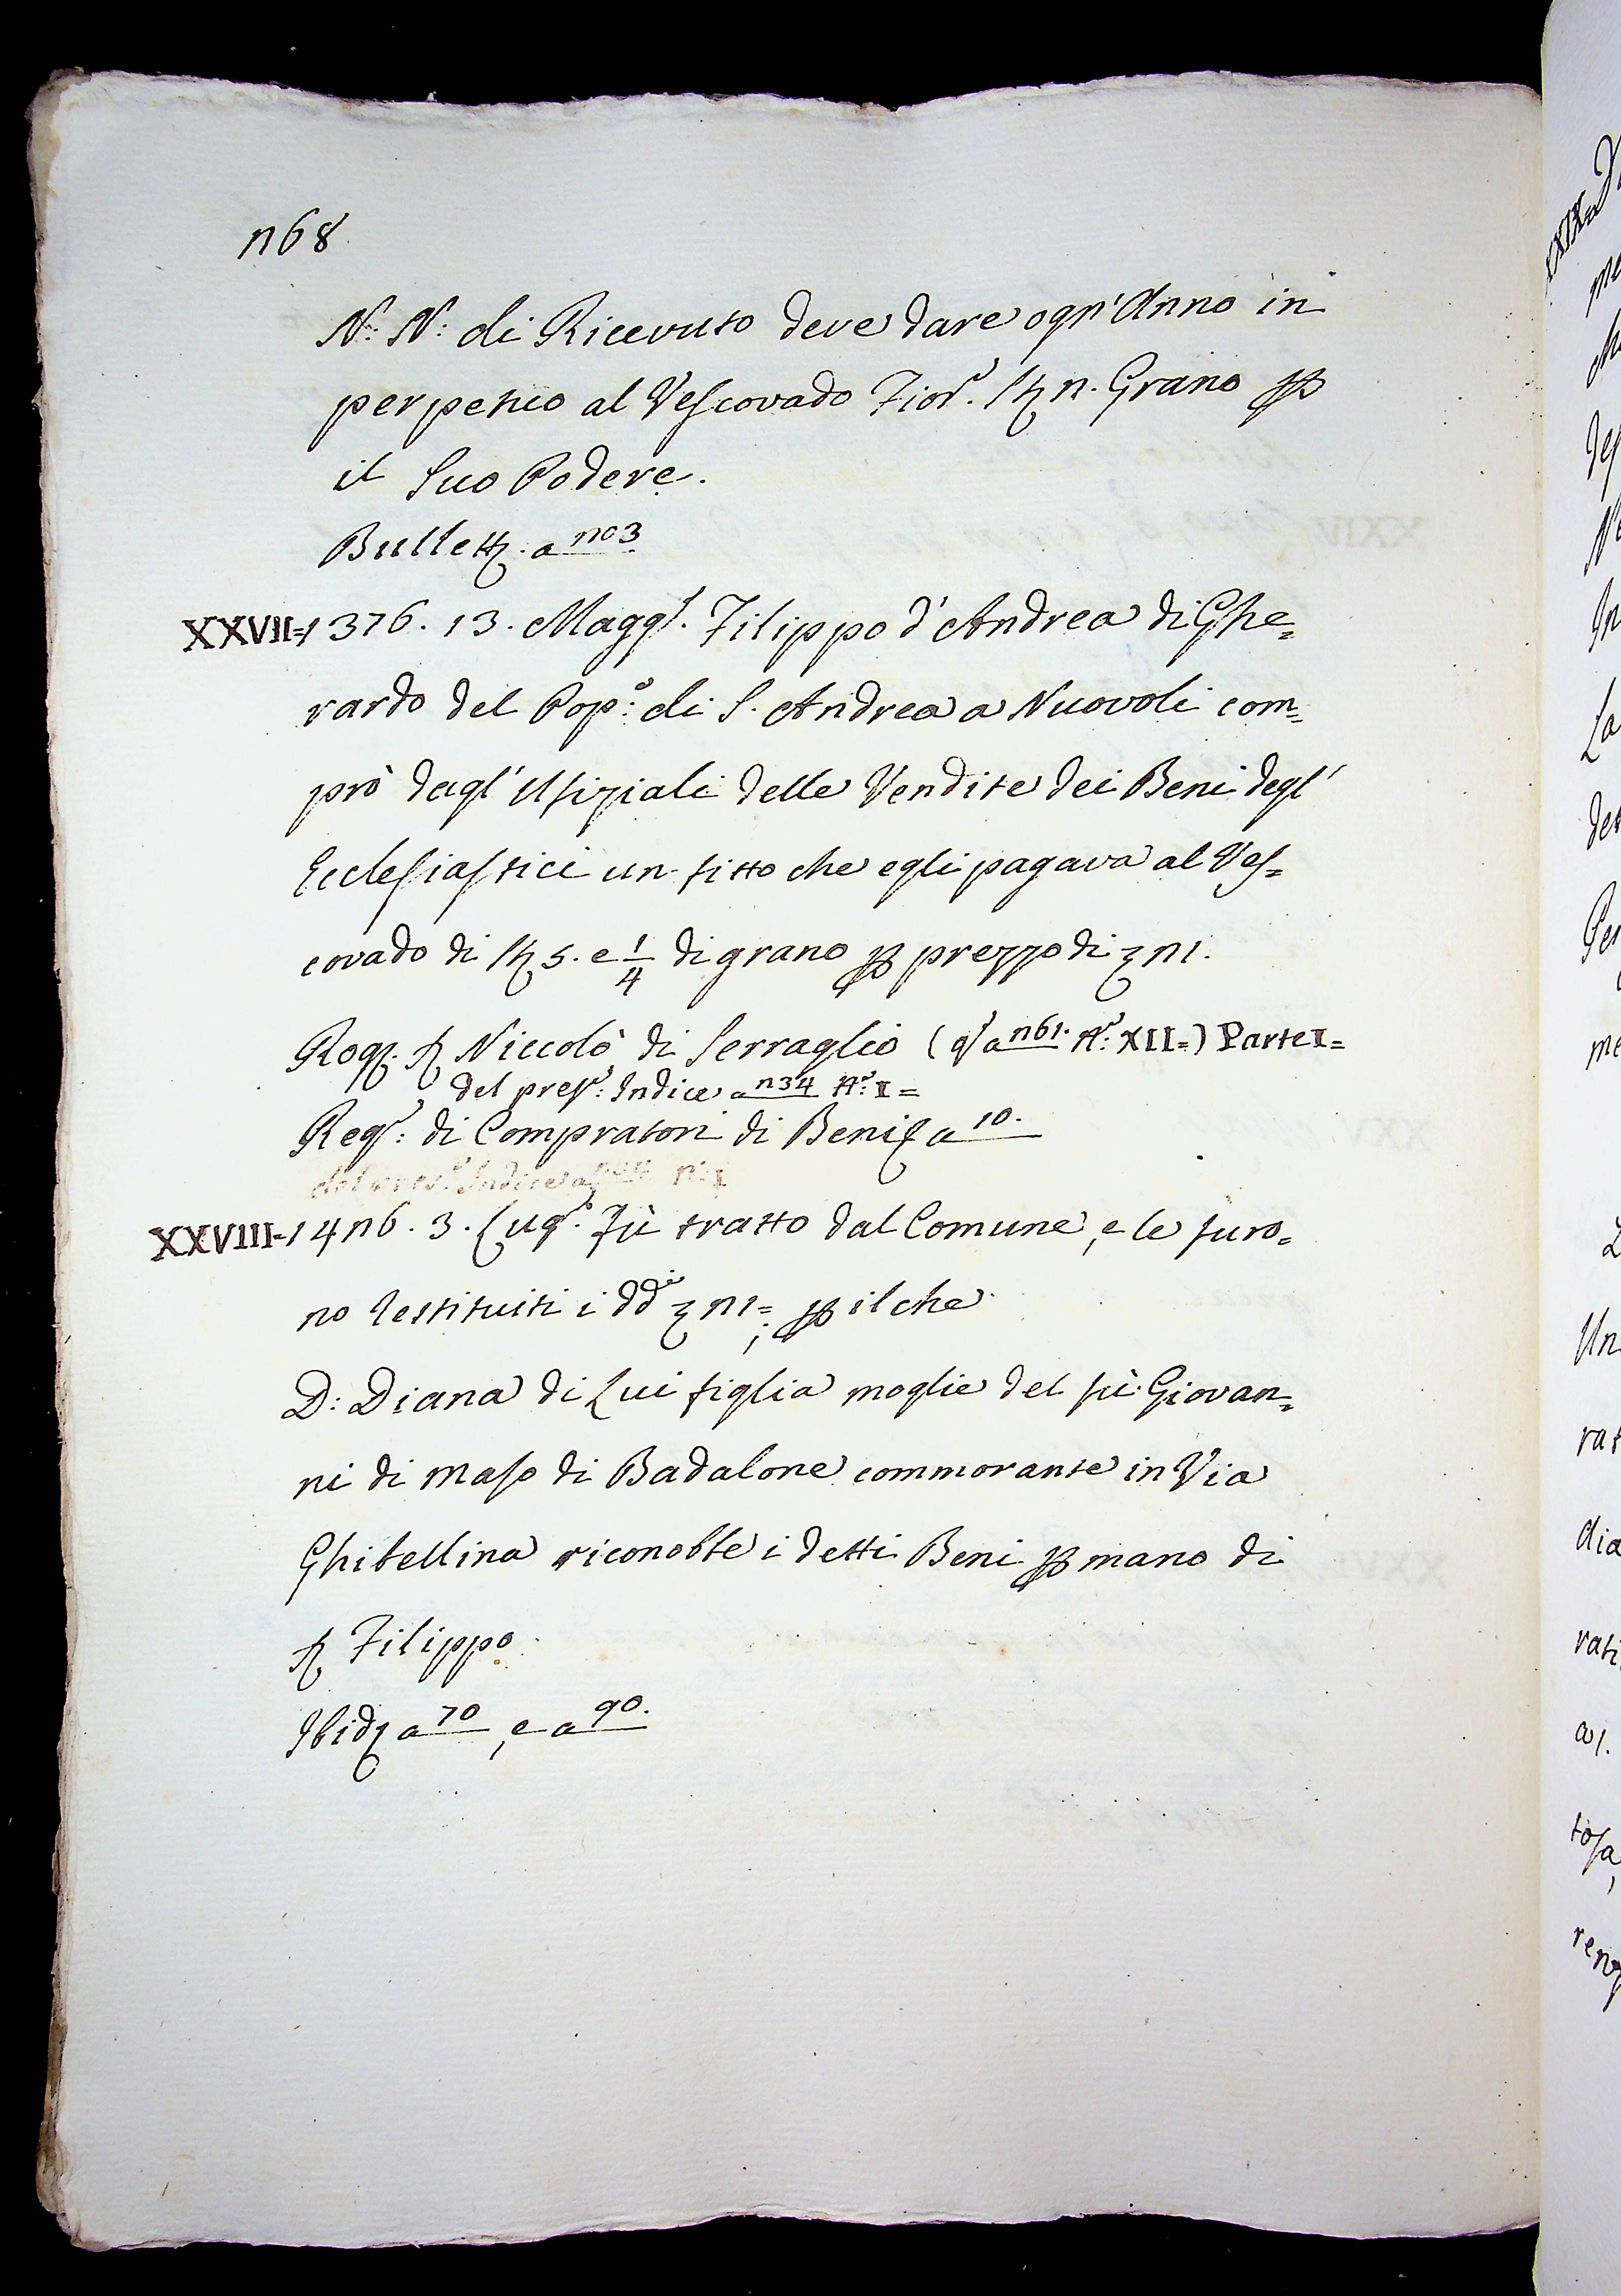 n68
N: N: di Ricevuto deve dare ogn' Anno in
perpetuo al Vescovado Fior.º n. Grano p
il Suo Podere.
Bullett. a n03
XXVII=1376. 13. Magg.º Filippo d'Andrea di Ghe=
rardo del Pop:º di S. Andrea a Nuovoli com=
prò dagl' Ufiziali delle Vendite dei Beni degl'
Ecclesiastici un fitto che egli pagava al Ves=
covado di 5. e 1/4 di grano p prezzo di n1.
Rog. Niccolò di Serraglio (a n61. N:º XII=) Parte I=
del pres:º Indice a n34 N:º I=
Reg:º di Compratori di Beni a 10.
del pres:º Indice a
XXVIII=14n6. 3. Lug.º Fù tratto dal Comune, e le furo=
no restituiti i dd.i n1=; p il che
D: Diana di Lui figlia moglie del fù Giovan=
ni di Maso di Badalone commorante in Via
Ghibellina riconobbe i detti Beni p mano di
Filippo
Ibid. a 70, e a 90.